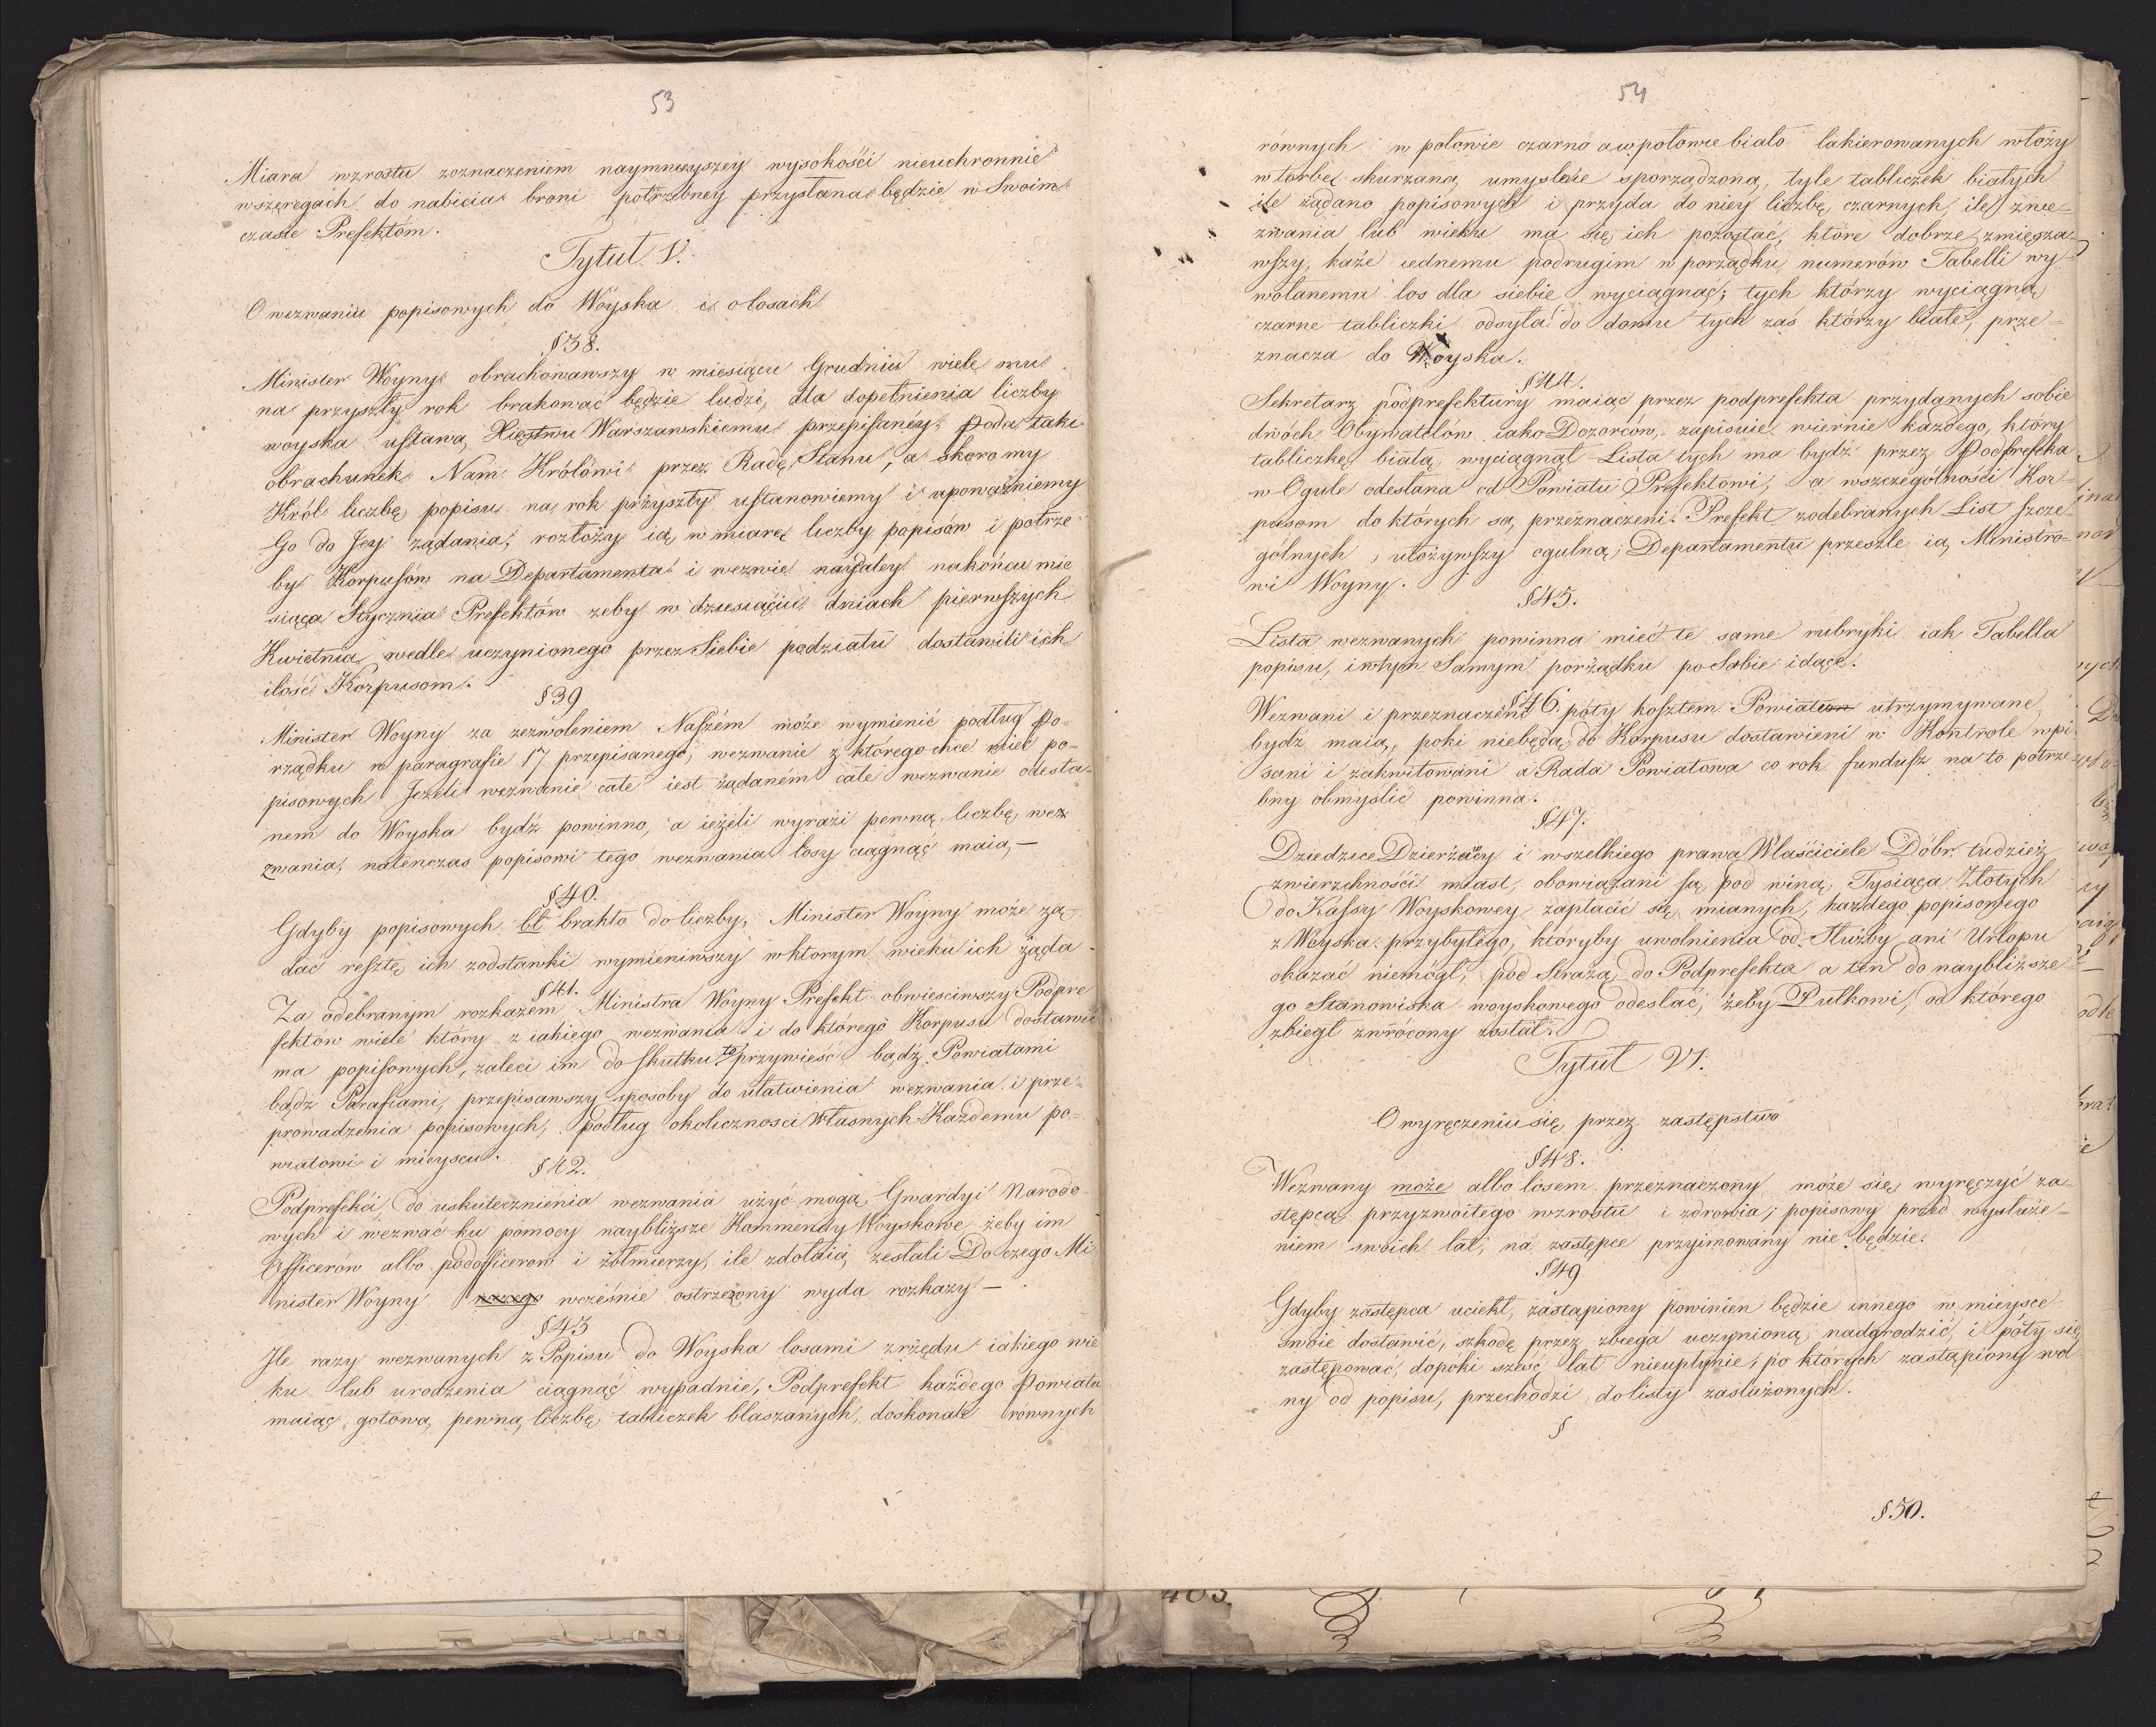 53
Miara wzrostu zoznaczeniem naymnieyszey wysokości nieuchronnie
wszeregach do nabicia broni potrzebney przysłana będzie w Swoim
czasie Prefektóm.
Tytuł V.
O wezwaniu popisowych do Woyska i o losach
§ 38.
Minister Woyny obrachowawszy w miesiącu Grudniu wiele mu
na przyszły rok brakować będzie ludzi, dla dopełnienia liczby
woyska ustawą Xięstwu Warszawskiemu przepisanéy. poda taki
obrachunek Nam Królowi przez Radę Stanu, a skoro my
Król liczbę popisu na rok przyszły ustanowiemy i upoważniemy
Go do Jey żądania, rozłoży ią w miarę liczby popisów i potrze
by Korpusów na Departamenta i wezwie naydaley nakońcu mie
siąca Stycznia Prefektów żeby w dziesiąciu dniach pierwszych
Kwietnia wedle uczynionego przez Siebie podziału dostawili ich
ilość Korpusom.
§ 39
Minister Woyny za zezwoleniem Naszém może wymienić podług Po-
rządku w paragrafie 17 przepisanego, wezwanie z którego chce mieć po-
pisowych Jeżeli wezwanie całe iest żądaném całe wezwanie odesła-
nem do Woyska bydź powinno, a ieżeli wyrazi pewną liczbę wez
zwania, natenczas popisowi tego wezwania losy ciągnąć maią,—
§ 40.
Gdyby popisowych bł brakło do liczby, Minister Woyny może żą
dać resztę ich zodstawki wymieniwszy wktorym wieku ich żąda-
§ 41.
Za odebranym rozkazem Ministra Woyny Prefekt obwieściwszy Podpre
fektów wiele który z iakiego wezwania i do którego Korpusu dostawić
ma popisowych, zaleci im do skutku to przywieść bądź Powiatami
bądz Parafiami, przepisawszy sposoby do ułatwienia wezwania i prze-
prowadzenia popisowych, podług okoliczności Własnych Każdemu po-
wiatowi i mieyscu.
§ 42.
Podprefekci, do uskutecznienia wezwania użyć mogą Gwardyi Narodo-
wych i wezwać ku pomocy naybliższe Kommendy Woyskowe żeby im
Officerów albo podofficerow i żołmierzy, ile zdołaią, zesłali Do czego Mi
nister Woyny wcześnie ostrzeżony wyda rozkazy —
§ 43
Jle razy wezwanych z Popisu do Woyska losami zrzędu iakiego wie
ku lub urodzenia ciągnąć wypadnie, Podprefekt każdego Powiatu
maiąc gotową pewną liczbę tabliczek blaszanych, doskonale równych
54
równych w połowie czarno a wpołowie biało lakierowanych włoży
w torbę skurzaną umyslnie sporządzoną, tyle tabliczek białych
ile żądano popisowych i przyda do niey liczbę czarnych, ile zwe-
zwania lub wieku ma się ich pozostać, które dobrze zmięsza-
wszy, każe iednemu podrugim w porządku numerów Tabelli wy-
wołanemu los dla siebie wyciągnąć; tych którzy wyciągną
czarne tabliczki odsyła do domu tych zaś którzy białe, prze-
znacza do Woyska.
§ 44.
Sekretarz podprefektury maiąc przez podprefekta przydanych sobie
dwóch Obywatelów iako Dozorców, zapisuie wiernie każdego, który
tabliczkę białą wyciągnął Lista tych ma bydź przez Podprefekta
w Ogule odesłana od Powiatu Prefektówi, a wszczególności Kor-
pusom do których są przeznaczeni. Prefekt zodebranych List szcze-
gólnych, ułożywszy ogulną Departamentu przeszle ią Ministro-
wi Woyny.
§ 45.
Lista wezwanych powinna mieć te same rubryki iak Tabella
popisu, iwtych Samym porządku po Sobie idące.
§ 46
Wezwani i przeznaczeni póty kosztem Powiatu utrzymywane
bydz maią, poki niebędą do Korpusu dostawieni w Kontrole wpi
sani i zakwitowani a Rada Powiatowa co rok fundusz na to potrze
bny obmyślić powinna.
§ 47.
Dziedzice Dzierżawcy i wszelkiego prawa Właściciele Dóbr tudzież
zwierzchności miast, obowiązani są pod winą Tysiąca Złotych
do Kassy Woyskowey zapłacić się mianych, każdego popisowego
z Woyska przybyłego, któryby uwolnienia od Służby ani Urlopu
okazać niemógł, pod Strażą do Podprefekta a ten do naybliższe
go Stanowiska woyskowego odesłać, żeby Pułkowi, od którego
zbiegł zwrócony został.
Tytuł VI.
O wyręczeniu się przez zastępstwo
§ 48.
Wezwany może albo losem przeznaczony może się wyręczyć za-
stępcą przyzwoitego wzrostu i zdrowia; popisowy przed wysłuże-
niem swoich lat, na zastępce przyimowany nie będzie.
§ 49
Gdyby zastępca uciekł, zastąpiony powinien będzie innego w mieysce
swoie dostawić, szkodę przez zbiega uczynioną nadgrodzić, i póty się
zastępować, dopóki sześć lat nieupłynie, po których zastąpiony wol
ny od popisu, przechodzi do listy zasłużonych.
§
§ 50.